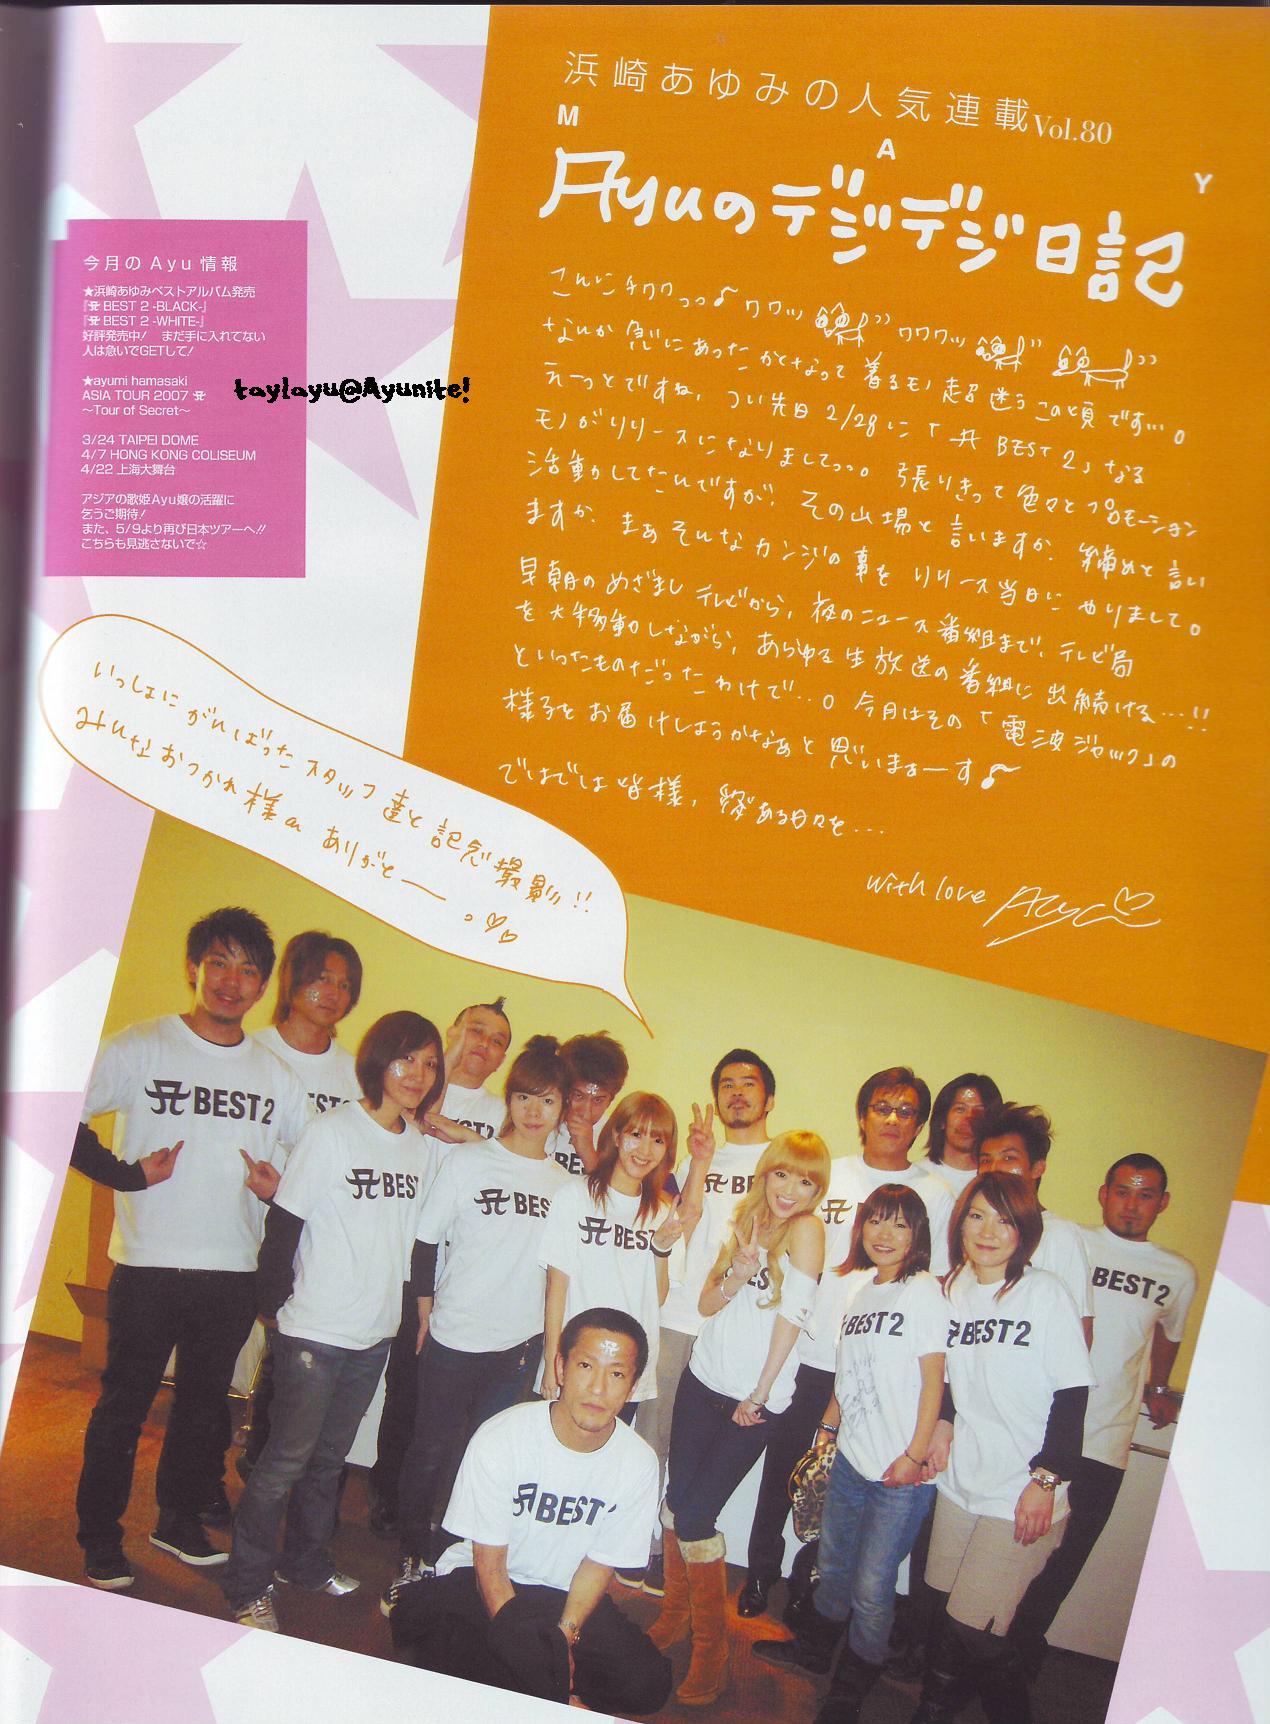 浜崎あゆみの人気連載Vol.80
MAY
Ayuのデジデジ日記
こんにチワワっっ♪ ワワッ ワワワッ
なんか急にあったかくなって着るモノ超迷うこの頃です…。
えーっとですね、つい先日2/28に「A BEST 2」なる
モノがリリースになりましてっっ。張りきって色々とプロモーション
活動かしてたんですが、その山場と言いますか、締めと言い
ますか、まあそんなカンジの事をリリース当日にやりまして。
早朝のめざましテレビから、夜のニュース番組まで、テレビ局
を大移動しながら、あらゆる生放送の番組に出続ける…!!
といったものだったわけで…。今月はその「電波ジャック」の
様子をお届けしようかなぁと思いまぁーす♪
ではでは皆様、愛ある日々を…
with love Ayu♡
今月のAyu情報
★浜崎あゆみベストアルバム発売
『A BEST 2 -BLACK-』
『A BEST 2 -WHITE-』
好評発売中! まだ手に入れてない
人は急いでGETして!
★ayumi hamasaki
ASIA TOUR 2007 A
〜Tour of Secret〜
3/24 TAIPEI DOME
4/7 HONG KONG COLISEUM
4/22 上海大舞台
アジアの歌姫Ayu嬢の活躍に
乞うご期待!
また、5/9より再び日本ツアーへ!!
こちらも見逃さないで☆
taylayu@Ayunite!
いっしょにがんばったスタッフ達と記念撮影!!
みんなおつかれ様 ありがとーっ♡♡
A BEST 2
EST
A BEST
EST2
A BES
BES
A BEST
A BE
BES
A
BEST 2
A BEST 2
BEST 2
A BEST 2